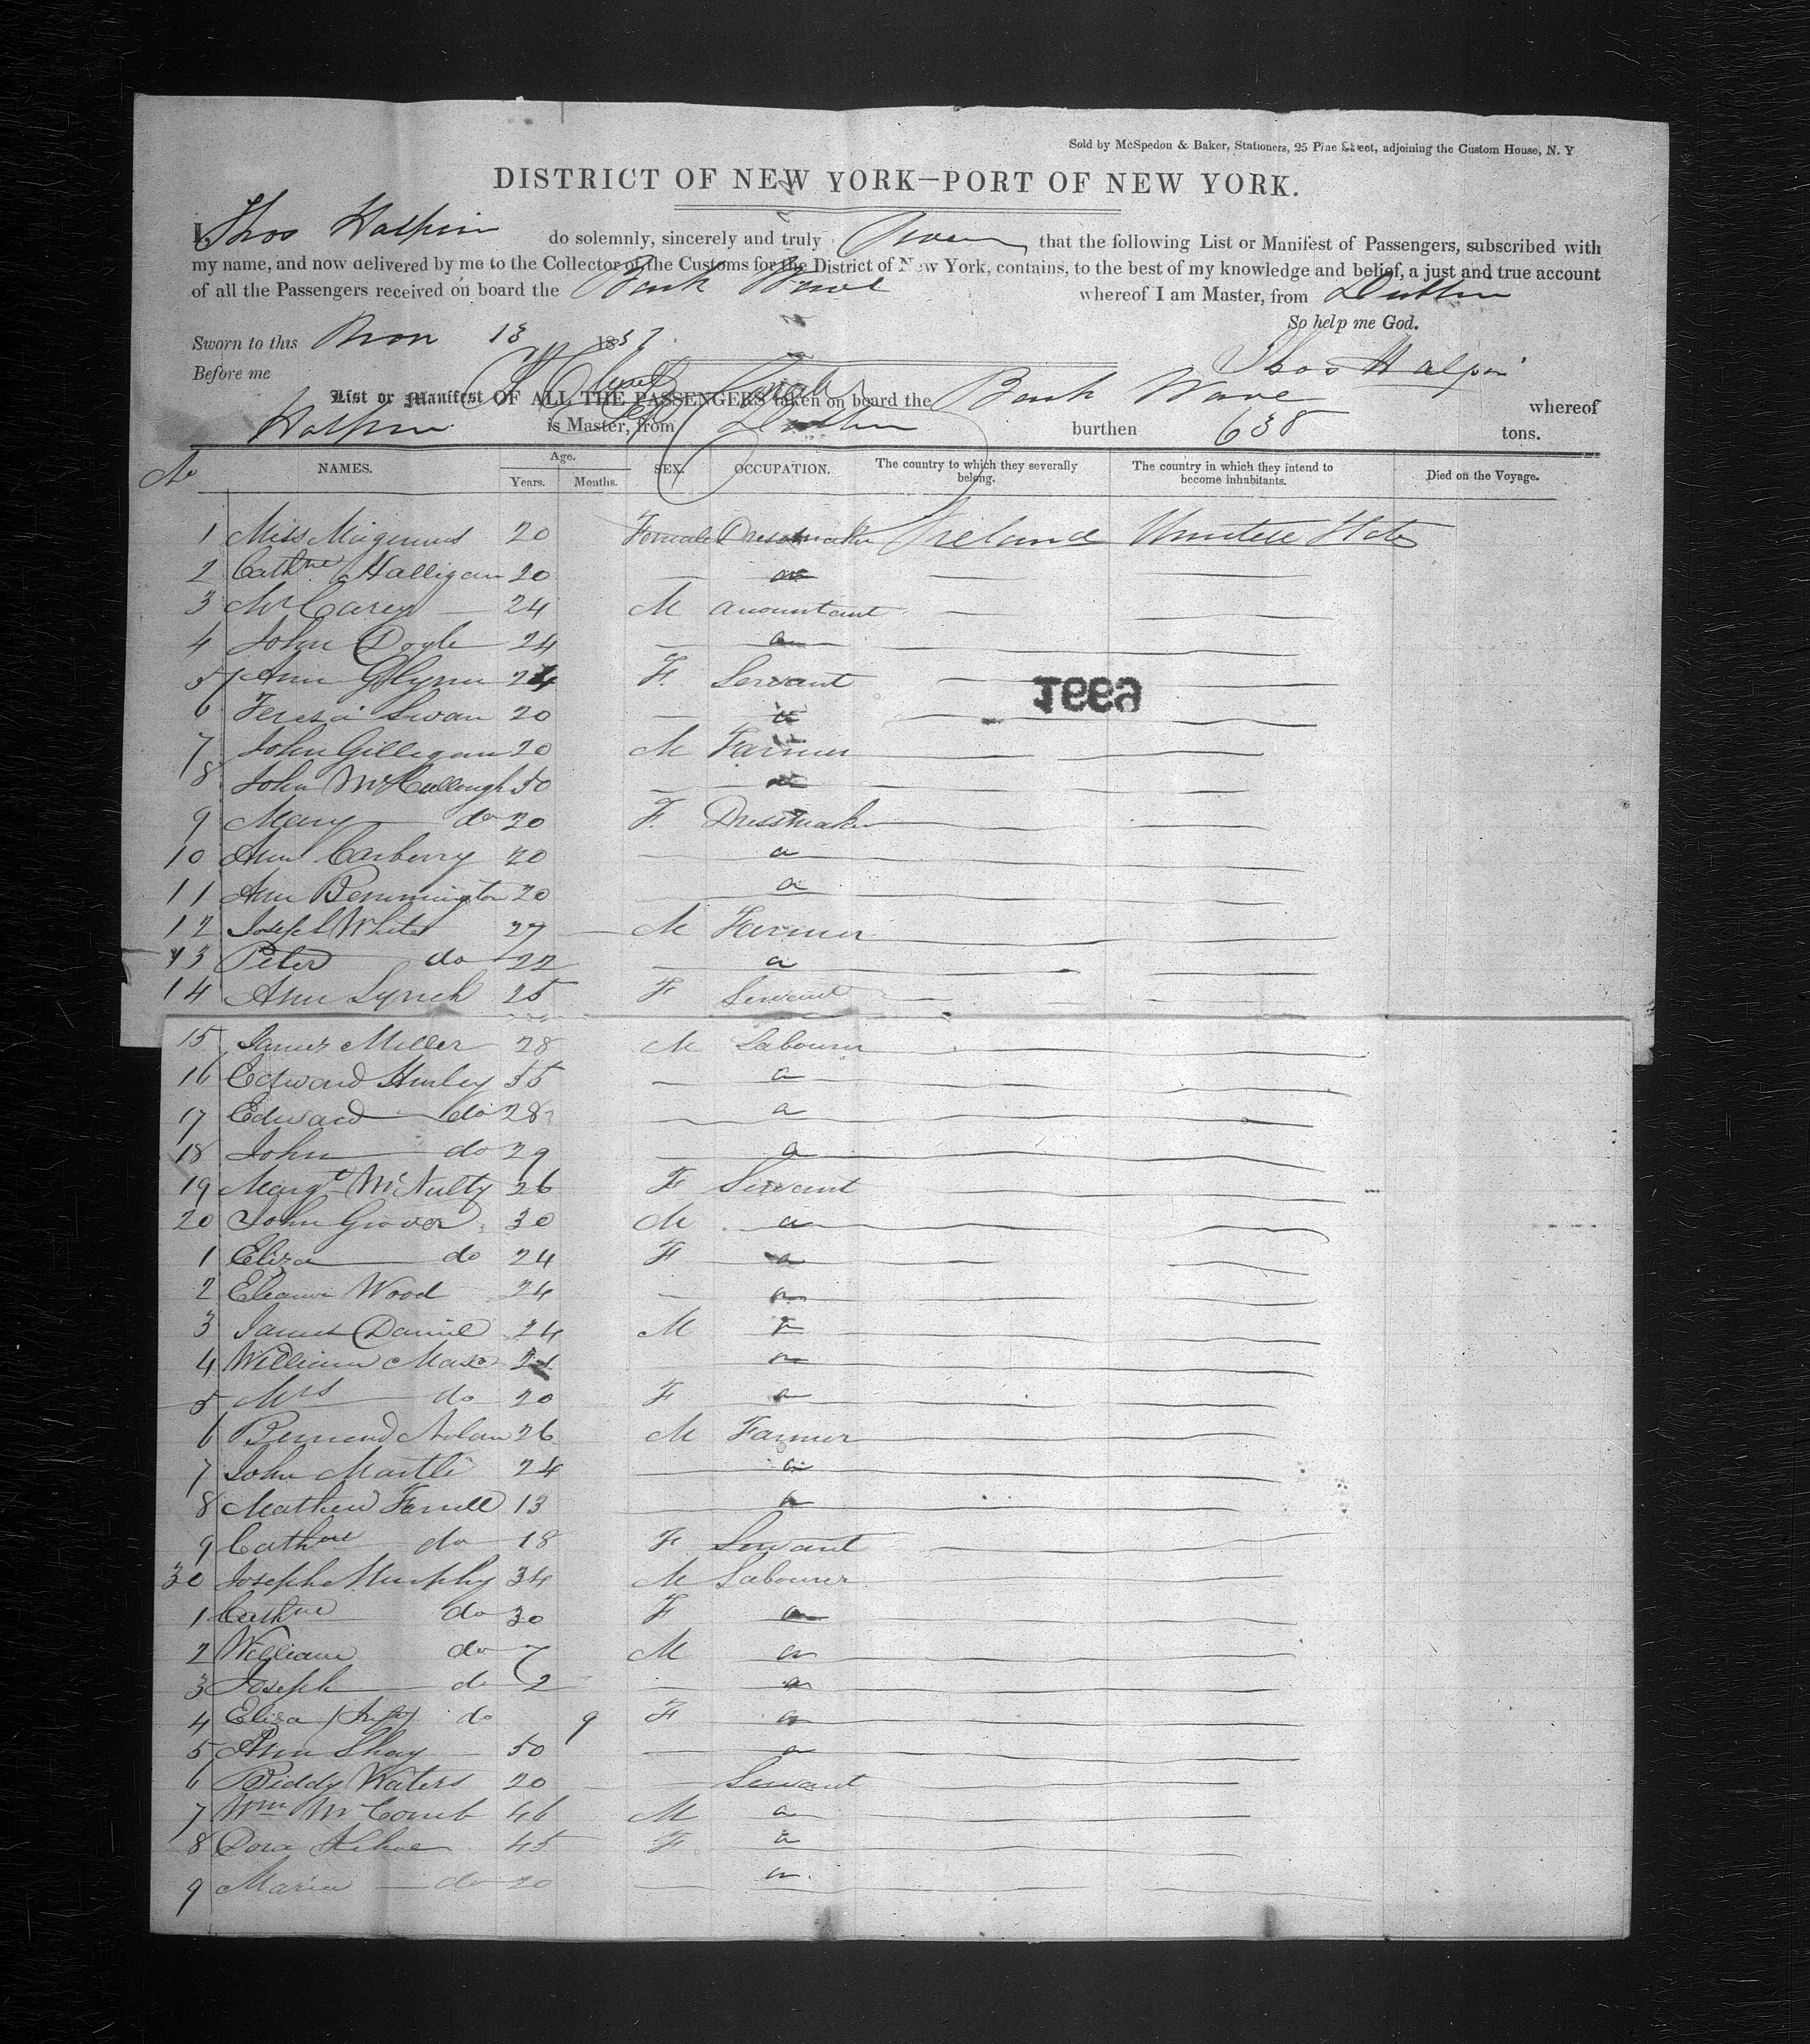 Sold by McSpedon & Baker, Stationers, 25 Pine Street, adjoining the Custom House, N. Y
DISTRICT OF NEW YORK—PORT OF NEW YORK.
I, Thos Halpin do solemnly, sincerely and truly Swear that the following List or Manifest of Passengers, subscribed with
my name, and now delivered by me to the Collector of the Customs for the District of New York, contains, to the best of my knowledge and belief, a just and true account
of all the Passengers received on board the Bark Wave whereof I am Master, from Dublin
So help me God.
Sworn to this 13 185
Before me Thos Halpin
List or Manifest OF ALL THE PASSENGERS taken on board the Bark Wave whereof
Halpin is Master, from Dublin burthen 638 tons.
No NAMES. Age. Years. Months. SEX. OCCUPATION. The country to which they severally belong. The country in which they intend to become inhabitants. Died on the Voyage.
1 Miss 20 Female Dressmaker Ireland United States
2 Cathne Halligan 20
3 Mr Carey 24 M Acountant
4 John Doyle 24
5 Ann Glynn 24 F. Servant
6 Teresa Swan 20
7 John Gilligan 20 M Farmer
8 John McCullough 50
9 Mary do 20 F. Dressmaker
10 Ann Carberry 20
11 Ann Bennington 20
12 Joseph White 27 M Farmer
13 Peter do 22
14 Ann Lynch 25 F Servant
15 James Miller 28 M Labourer
16 Edward Hurley 55
17 Edward do 28
18 John do 29
19 Margt McNulty 26 F Servant
20 John Grover 30 M
1 Eliza do 24 F
2 Eleanor Wood 24
3 James Daniel 24 M
4 William
5 Mrs do 20 F
6 Bernard Nolan 26 M Farmer
7 John 24
8 Mathew Farrell 13
9 Cathne do 18 F Servant
30 Joseph Murphy 34 M Labourer
1 Cathne do 30 F
2 William do 7 M
3 Joseph do 2
4 Eliza (Inft) do 9 F
5 Ann Shay 50
6 Biddy Waters 20 Servant
7 Wm McComb 46 M
8 Dora 45 F
9 Maria do 20